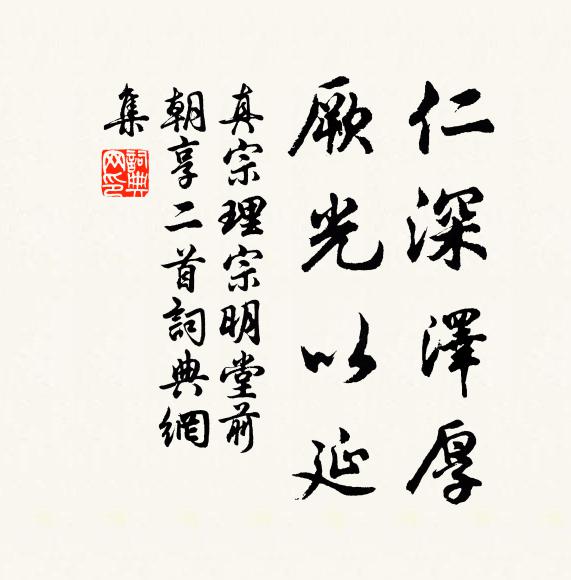 仁深澤厚
厥光以延
真宗理宗明堂前
朝享二首詞典網
集
詞典
网印